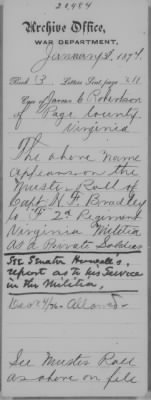 20,484
Archive Office,
WAR DEPARTMENT,
January 8, 1874.
Book 13 Letters Sent, page 211
Case of James C Robertson
of Page County
Virginia
The above name
appears on the
Muster Roll of
Capt. N. F. Bradley
Co "F" 2d Regiment
Virginia Militia
as a Private Soldier
See Senator
report as to his Service
in the Militia,
Allowed
See Muster Roll
as above on file